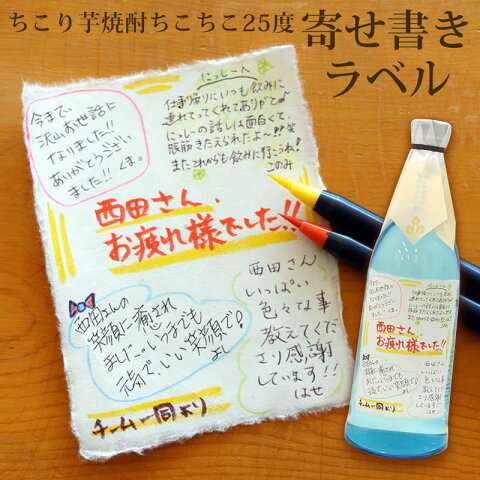 ちこり芋焼酎ちこちこ25度
寄せ書き
ラベル
今まで
沢山お世話に
なりました!!
ありがとうござい
ました!! くま。
にっしーへ
仕事帰りにいつも飲みに
連れてってくれてありがと〜
にっしーの話しは面白くて、
腹筋きたえられたよ〜!!笑
またこれからも飲みに行こうね!
このみ
西田さん、
お疲れ様でした!!
西田さんの
笑顔に癒され
ました。いつまでも
いい笑顔で!
よし
西田さん
いっぱい
色々な事
教えてくだ
さり感謝
しています!!
はせ
チーム一同より
西田さん、
お疲れ様でした!!